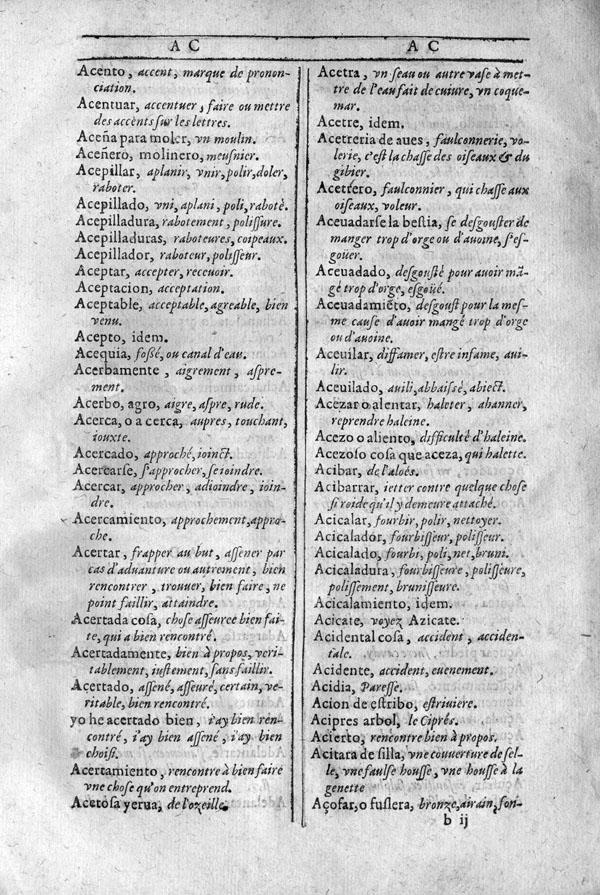 A C
Acento, accent, marque de pronon-
ciation.
Acentuar, accentuer, faire ou mettre
des accẽts ſur les lettres.
Aceña para moler, vn moulin.
Aceñero, molinero, meuſnier.
Acepillar, aplanir, vnir, polir, doler,
raboter.
Acepillado, vni, aplani, poli, rabotè.
Acepilladura, rabotement, poliſſure.
Acepilladuras, raboteures, coipeaux.
Acepillador, raboteur, poliſſeur.
Aceptar, accepter, receuoir.
Aceptacion, acceptation.
Aceptable, acceptable, agreable, bien
venu.
Acepto, idem.
Acequia, foßé, ou canal d'eau.
Acerbamente, aigrement, aſpre-
ment.
Acerbo, agro, aigre, aſpre, rude.
Acerca, o a cerca, aupres, touchant,
iouxte.
Acercado, approché, ioinct.
Acercarſe, s'approcher, ſe ioindre.
Acercar, approcher, adioindre, ioin-
dre.
Acercamiento, approchement, appro-
che.
Acertar, frapper au but, aſſener par
cas d'aduanture ou autrement, bien
rencontrer, trouuer, bien faire, ne
point faillir, attaindre.
Acertada coſa, choſe aſſeuree bien fai-
te, qui a bien rencontré.
Acertadamente, bien à propos, veri-
tablement, iuſtement, ſans faillir.
Acertado, aſſené, aſſeuré, certain, ve-
ritable, bien rencontré.
yo he acertado bien, i'ay bien ren-
contré, i'ay bien aſſené, i'ay bien
choiſi.
Acertamiento, rencontre à bien faire
vne choſe qu'on entreprend.
Acetoſa yerua, de l'ozeille.
A C
Acetra, vn ſeau ou autre vaſe à met-
tre de l'eau fait de cuiure, vn coque-
mar.
Acetre, idem.
Acetreria de aues, faulconnerie, vo-
lerie, c'eſt la chaſſe des oiſeaux & du
gibier.
Acetrero, faulconnier, qui chaſſe aux
oiſeaux, voleur.
Aceuadarſe la beſtia, ſe deſgouſter de
manger trop d'orge ou d'auoine, s'eſ-
goüer.
Aceuadado, deſgouſté pour auoir mã-
gé trop d'orge, eſgoüé.
Aceuadamiẽto, deſgouſt pour la meſ-
me cauſe d'auoir mangé trop d'orge
ou d'auoine.
Aceuilar, diffamer, eſtre infame, aui-
lir.
Aceuilado, auili, abbaiſsé, abiect.
Acezar o alentar, haleter, ahanner,
reprendre haleine.
Acezo o aliento, difficulté d'haleine.
Acezoſo coſa que aceza, qui halette.
Acibar, de l'aloés.
Acibarrar, ietter contre quelque choſe
ſi roide qu'il y demeure attaché.
Acicalar, fourbir, polir, nettoyer.
Acicalador, fourbiſſeur, poliſſeur.
Acicalado, fourbi, poli, net, bruni.
Acicaladura, fourbiſſeure, poliſſeure,
poliſſement, bruniſſeure.
Acicalamiento, idem.
Acicate, voyez Azicate.
Acidental coſa, accident, acciden-
tale.
Acidente, accident, euenement.
Acidia, Pareſſe.
Acion de eſtribo, eſtriuiere.
Acipres arbol, le Ciprés.
Acierto, rencontre bien à propos.
Acitara de ſilla, vne couuerture de ſel-
le, vne faulſe houſſe, vne houſſe à la
genette
Açofar, o fuſlera, bronze, airain, fon-
b ij